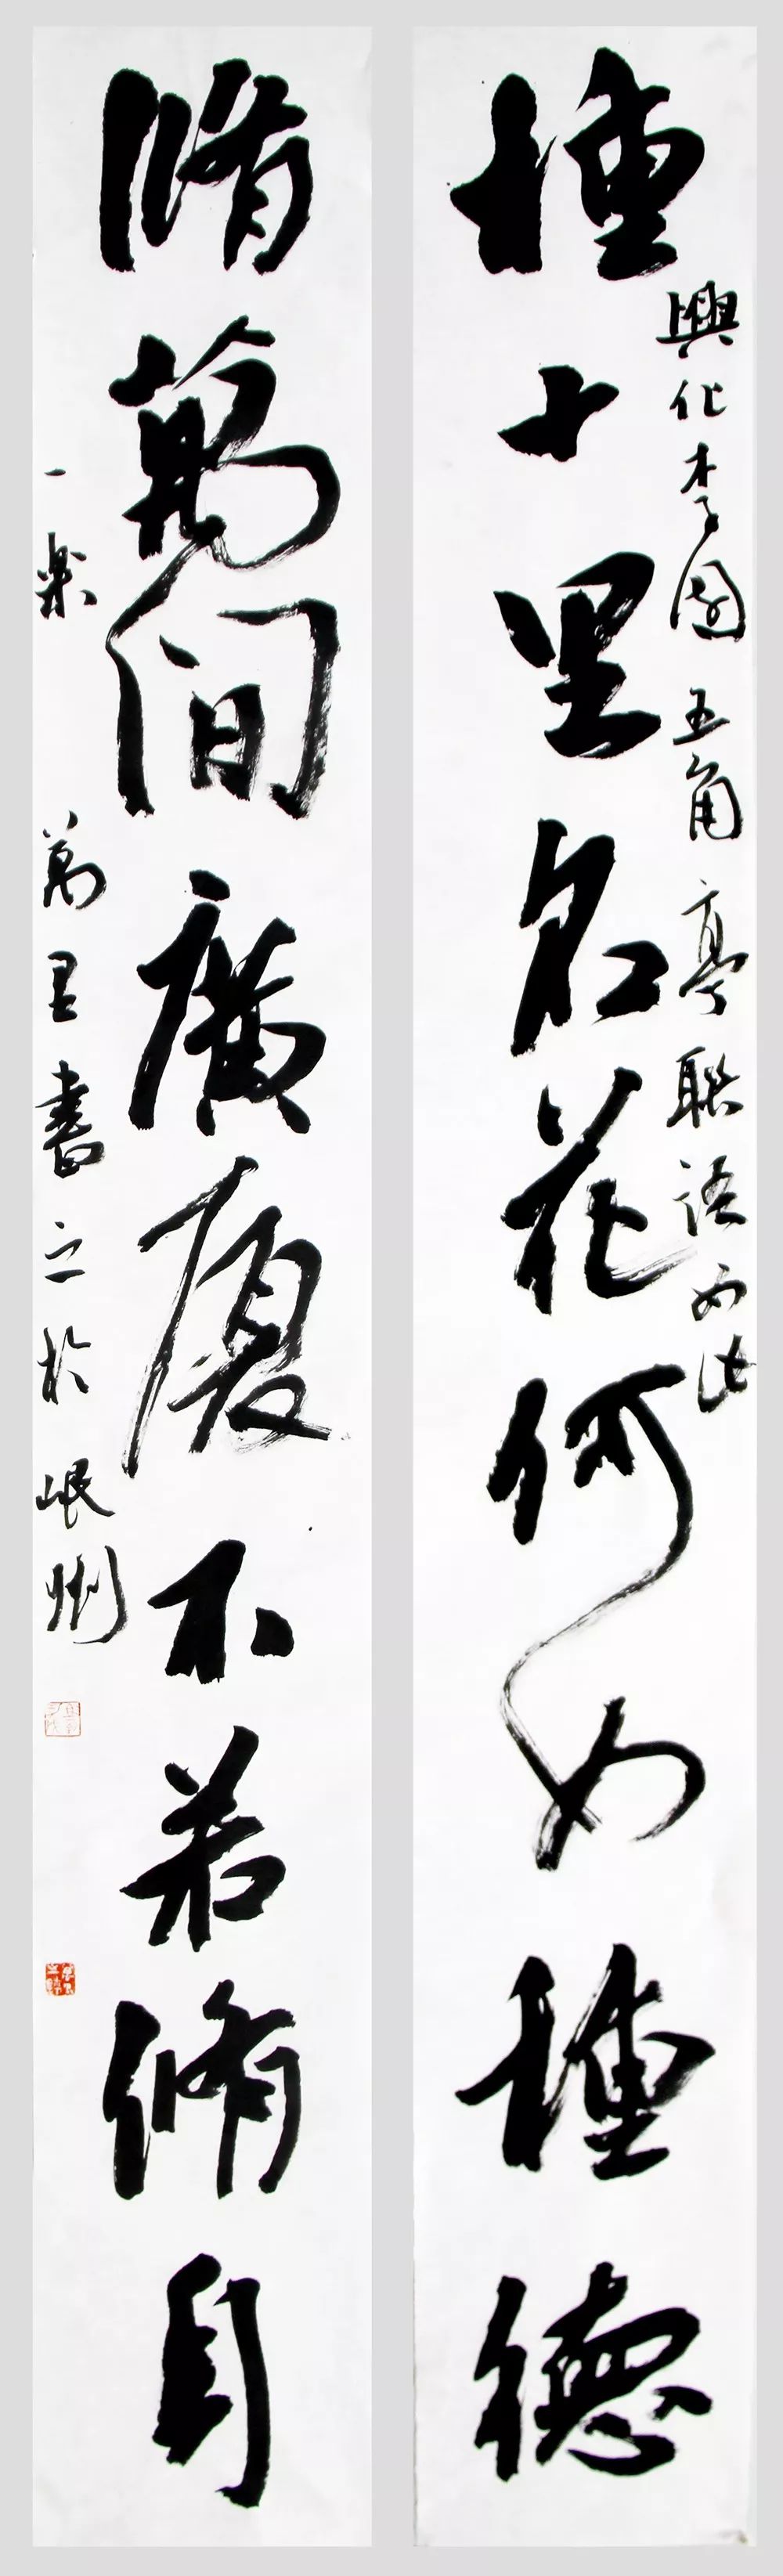 興化李園五角亭聯語如此
種十里名花何如種德
脩萬間廣廈不若脩身
一樂萬里書之於岷州